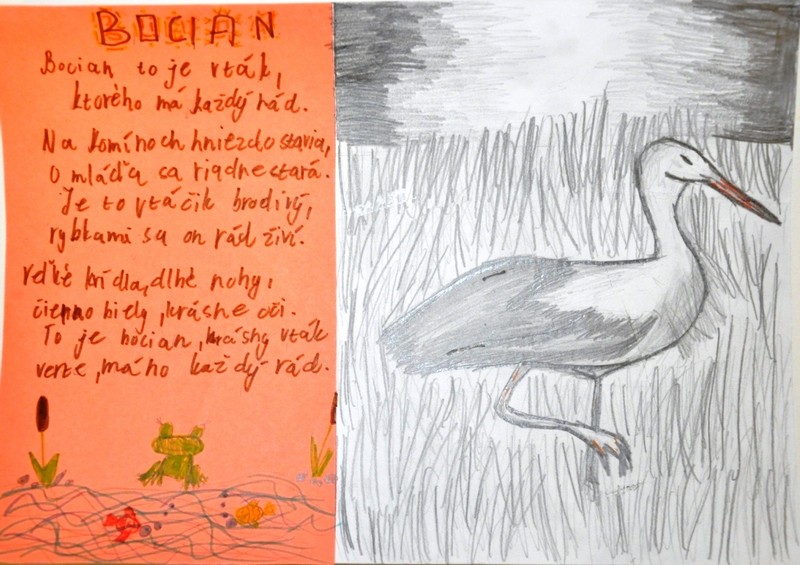 BOCIAN
Bocian to je vták,
ktorého má každý rád.
Na komínoch hniezdo stavia,
o mláďa sa riadne stará.
Je to vtáčik brodivý,
rybkami sa on rád živí.
Veľké krídla, dlhé nohy,
čierno biely, krásne oči.
To je bocian, krásny vták
verte, má ho každý rád.